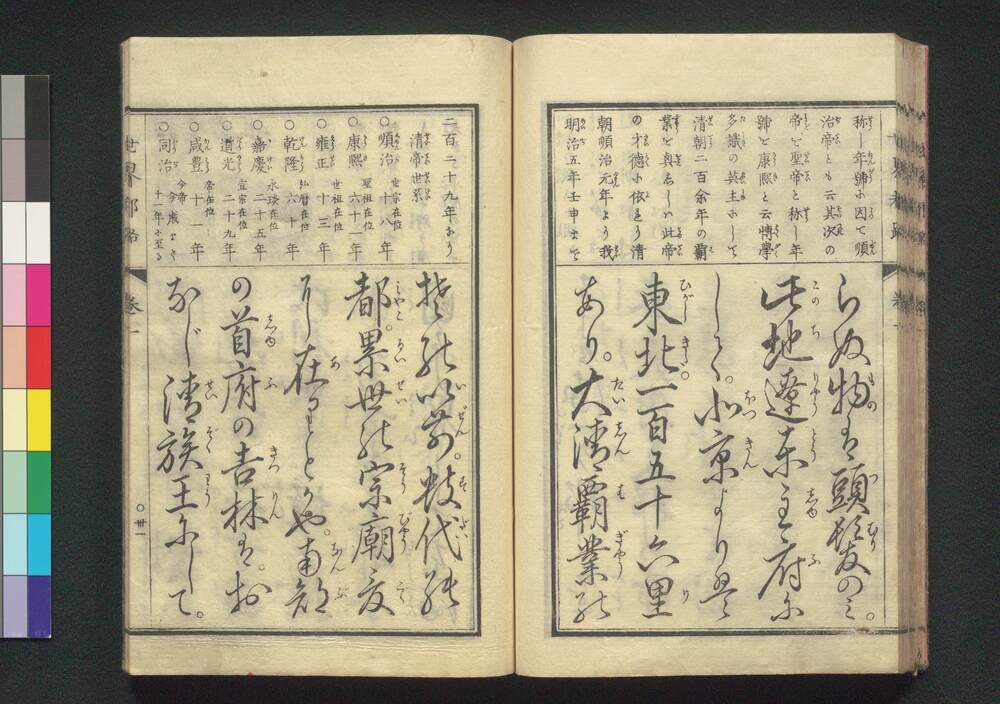 称し年號に因て順
治帝とも云其次の
帝を聖帝と称し年
號を康熙と云博學
多識の英主にして
清朝二百余年の覇
業を奥をしハ此帝
の才徳に依る
朝順治元年より我
明治五年壬申まで
らぬ物は頭髪のミ。
此地遼東
しく。北京より
東北一百五十六里
あり。大清覇業の
二百二十九年なり
清帝世累
〇順治 世宗在位 十八年
〇康熙 聖祖在位 六十一年
〇雍正 世祖在位 十三年
〇乾隆 弘暦在位 六十年
〇嘉慶 永琰在位 二十五年
〇道光 宣宗在位 二十九年
〇咸豊 帝在位 十一年
〇同治 今帝 今歳まで 十一年に至る
以前。数代の
都。累世の宗廟
に在るとかや。南部
の首府の吉林は。お
なじ清族王にして。
世界都路 巻一
〇卅一